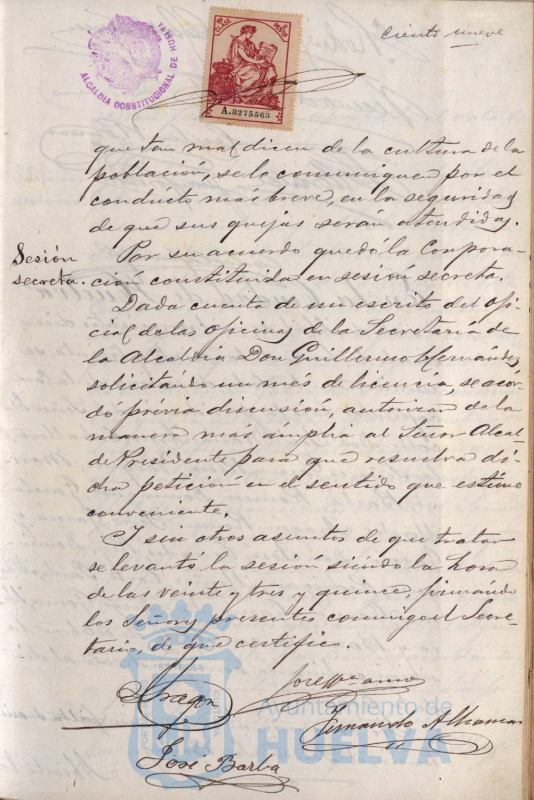 ciento nueve
ALCALDIA CONSTITUCIONAL DE HUELVA
A.3275563
que tan mal dicen de la cultura de la
población, se lo comuniquen por el
conducto más breve, en la seguridad
de que sus quejas serán atendidas.
Sesión
secreta.
Por su acuerdo quedó la Corpora-
ción constituida en sesión secreta.
Dada cuenta de un escrito del ofi-
cial de las oficinas de la Secretaría de
la Alcaldía Don Guillermo Hernández
solicitando un més de licencia, se acor-
do prévia discusión, autorizar de la
manera más ámplia al Señor Alcal-
de Presidente para que resuelva di-
cha petición en el sentido que estime
conveniente.
Y sin otros asuntos de que tratar
se levantó la sesión siendo la hora
de las veinte y tres y quince, firmando
los Señores presentes conmigo el Secre-
tario, de que certifico.
Aragón
Fernando
José Barba
Ayuntamiento de
HUELVA